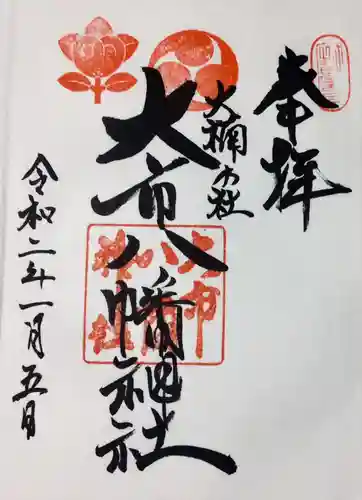 奉拝
大楠の社
大市八幡神社
令和二年一月五日
大市八幡神社